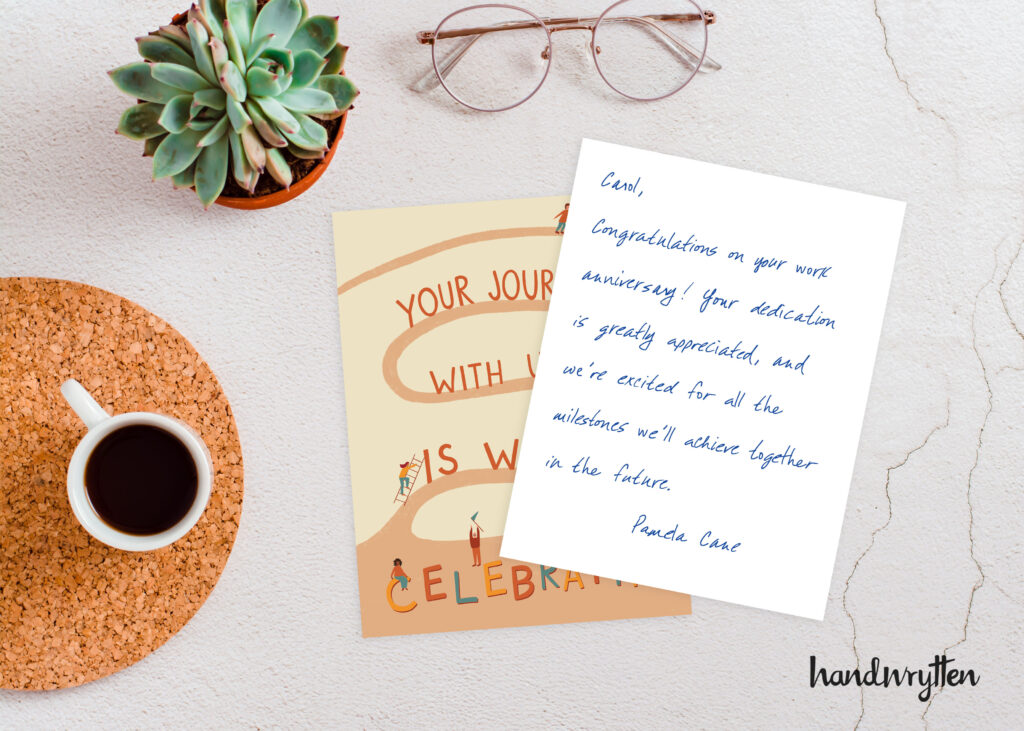 YOUR JOUR
WITH U
IS W
CELEBRATI
Carol,
Congratulations on your work
anniversary! Your dedication
is greatly appreciated, and
we're excited for all the
milestones we'll achieve together
in the future.
Pamela Cane
handwrytten